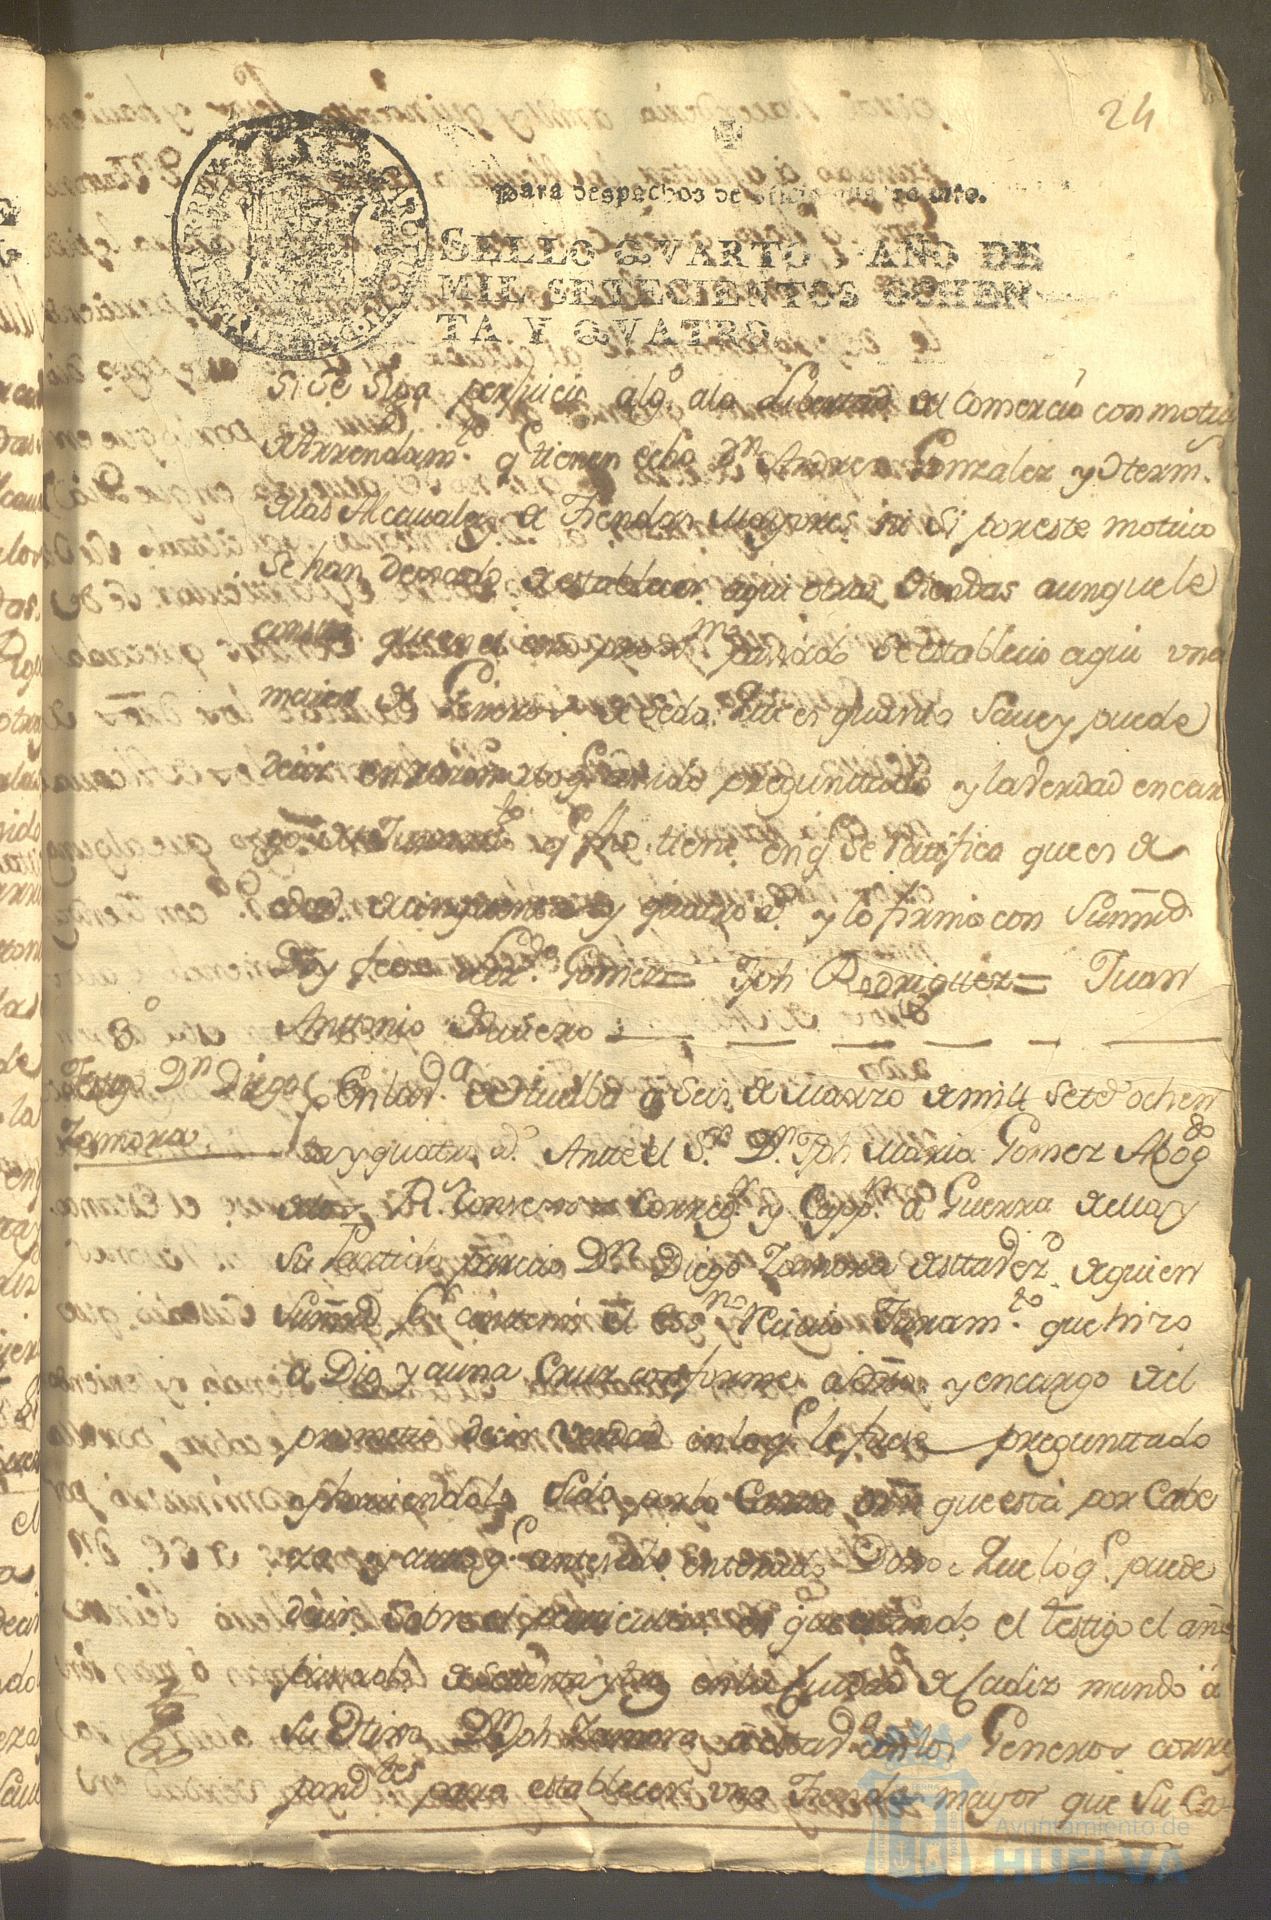 24
Para despachos de oficio quatro mrs.
SELLO QVARTO, AÑO DE
MIL SETECIENTOS OCHEN
TA Y QVATRO.
si se siga perjuicio algo. ala Libertad del Comercio con motivo
de Arrendamto. q tienen echo Dn. Andres Gonzalez y
delas Alcavalas de Tiendas mayores ni si por este motivo
se han dexado de establecer aqui otras tiendas aunque le
consta que en el año proxmo. pasado se establecio aqui una
de Generos de Que es quanto save y puede
decir en razon de lo q a sido preguntado y la verdad en car
go de su Juramto. q fho. tiene en q. se ratifica que es de
edad de cinquenta y quatro as. y lo firmo con su mrd
Doy fee = Lizdo. Gomez = Jph Rodriguez = Juan
Anttonio de Quiero
8º
Testigo Dn Diego
Zamora
En la va. de Huelba a Seis de Marzo de mill setezs ochen
ta y quatro as. Antte el Sr. Dn. Jph Maria Gomez Abogdo
delos Rs. Consejos Corregor. y Cappn. a Guerra de ella y
su Partido parecio Dn Diego Zamora de estta vezd. de quien
su mrd por antemi el Essno. Recivio Juramto. que hizo
a Dios y a una Cruz conforme a dro. y en cargo del
prometio decir verdad en lo q le fuese preguntado
y haviendolo sido por la Carta orn que está por Cabe
za y auto q antesede enterado Dixo: Que lo q. puede
decir sobre el particular es que estando el testigo el año
pasado de setenta y tres en la Ciudad de Cadiz mando á
su Dn Jph Zamora a esta va con los Generos corres
pondtes para establecer una Tienda mayor que su Ca
Ayuntamiento de
HUELVA